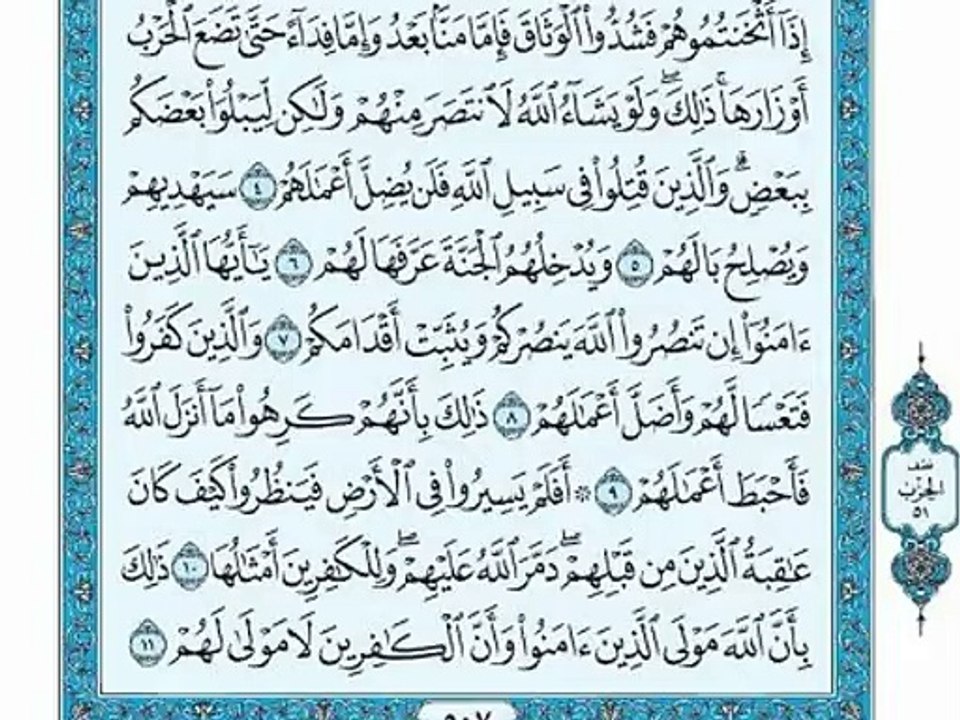 إِذَآ أَثْخَنتُمُوهُمْ فَشُدُّوا۟ ٱلْوَثَاقَ فَإِمَّا مَنًّۢا بَعْدُ وَإِمَّا فِدَآءً حَتَّىٰ تَضَعَ ٱلْحَرْبُ
أَوْزَارَهَا ۚ ذَٰلِكَ ۖ وَلَوْ يَشَآءُ ٱللَّهُ لَٱنتَصَرَ مِنْهُمْ وَلَٰكِن لِّيَبْلُوَا۟ بَعْضَكُم
بِبَعْضٍ ۗ وَٱلَّذِينَ قُتِلُوا۟ فِى سَبِيلِ ٱللَّهِ فَلَن يُضِلَّ أَعْمَٰلَهُمْ ٤ سَيَهْدِيهِمْ
وَيُصْلِحُ بَالَهُمْ ٥ وَيُدْخِلُهُمُ ٱلْجَنَّةَ عَرَّفَهَا لَهُمْ ٦ يَٰٓأَيُّهَا ٱلَّذِينَ
ءَامَنُوٓا۟ إِن تَنصُرُوا۟ ٱللَّهَ يَنصُرْكُمْ وَيُثَبِّتْ أَقْدَامَكُمْ ٧ وَٱلَّذِينَ كَفَرُوا۟
فَتَعْسًا لَّهُمْ وَأَضَلَّ أَعْمَٰلَهُمْ ٨ ذَٰلِكَ بِأَنَّهُمْ كَرِهُوا۟ مَآ أَنزَلَ ٱللَّهُ
فَأَحْبَطَ أَعْمَٰلَهُمْ ٩ ۞ أَفَلَمْ يَسِيرُوا۟ فِى ٱلْأَرْضِ فَيَنظُرُوا۟ كَيْفَ كَانَ
عَٰقِبَةُ ٱلَّذِينَ مِن قَبْلِهِمْ ۖ دَمَّرَ ٱللَّهُ عَلَيْهِمْ ۖ وَلِلْكَٰفِرِينَ أَمْثَٰلُهَا ١٠ ذَٰلِكَ
بِأَنَّ ٱللَّهَ مَوْلَى ٱلَّذِينَ ءَامَنُوا۟ وَأَنَّ ٱلْكَٰفِرِينَ لَا مَوْلَىٰ لَهُمْ ١١
نصف
الحزب
٥١
٥٠٧